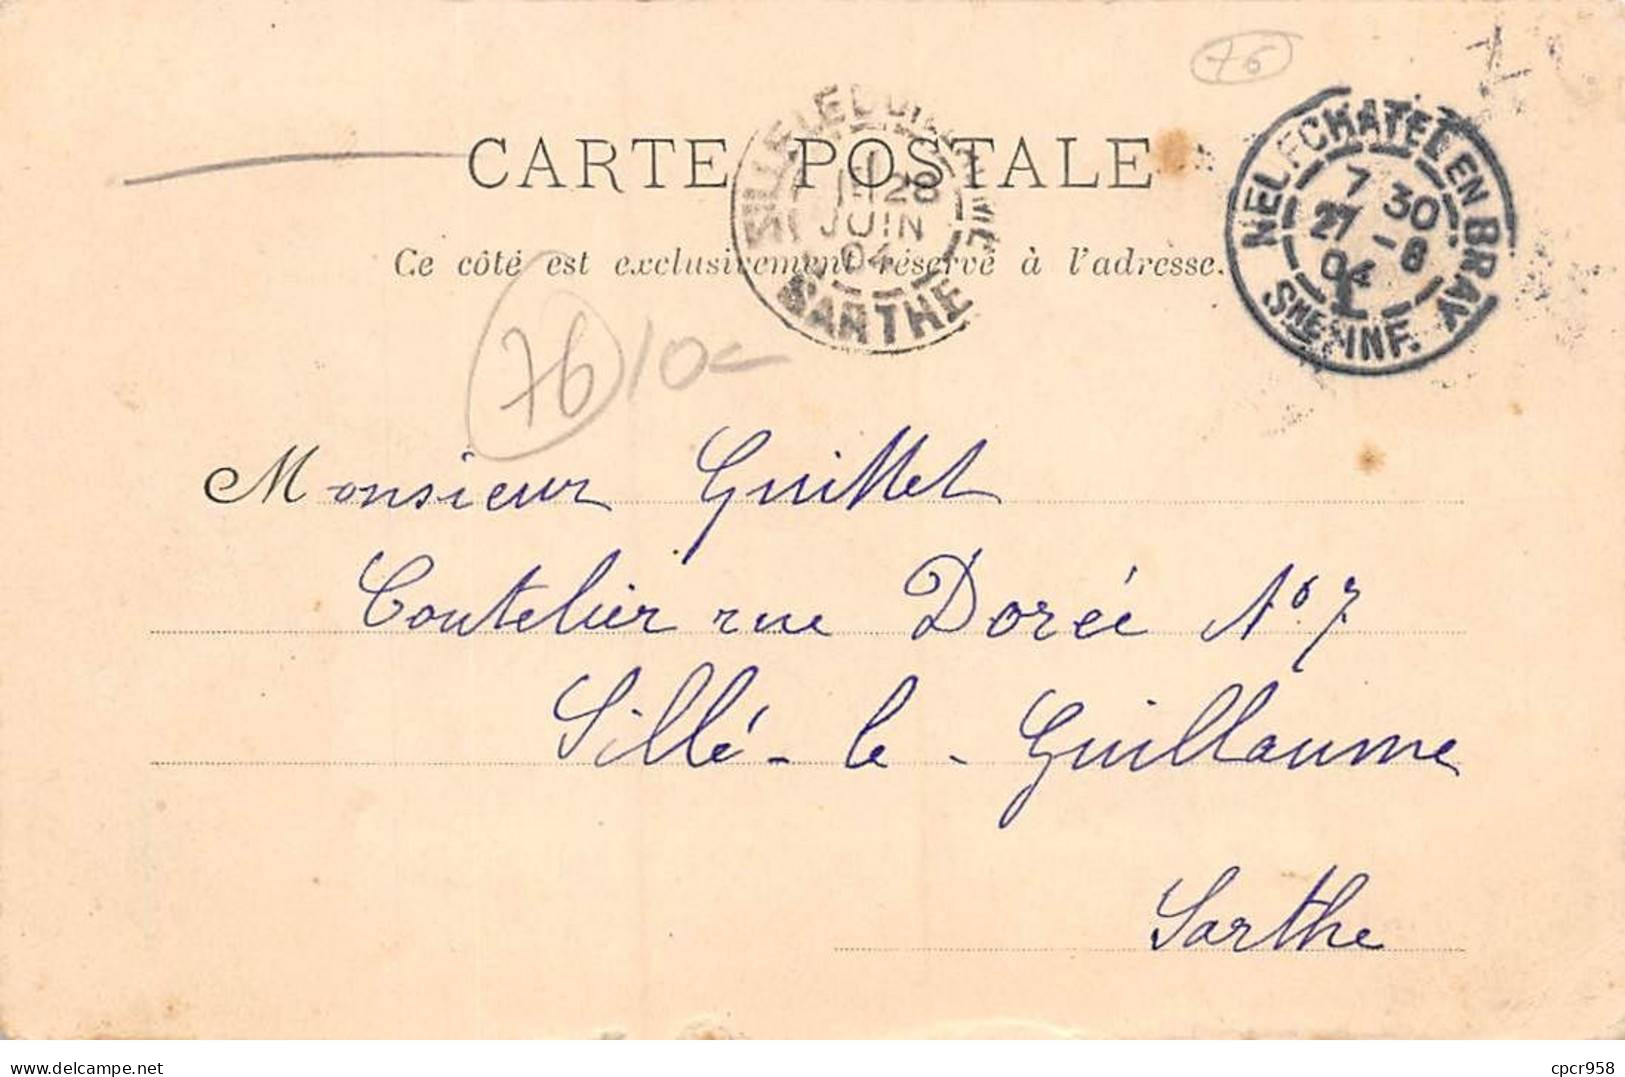 76
CARTE POSTALE
SILLE LE GUILLAUME
28
JUIN
04
SARTHE
NEUFCHATEL EN BRAY
7 30
27 - 6
04
SNE INFRE
Ce côté est exclusivement réservé à l'adresse.
76 10-
Monsieur Guillet
Coutelier rue Dorée No 7
Sillé-le-Guillaume
Sarthe
delcampe.net
cpcr958